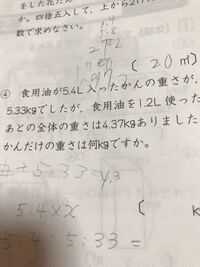 をした花だん
か。四捨五入して、上から2けた
数で求めなさい。
5.4
5.8
〔 20 ㎡
④ 食用油が5.4L入ったかんの重さが、
5.33kgでしたが、食用油を1.2L使った
あとの全体の重さは4.37kgありました
かんだけの重さは何kgですか。
5.33=
5.4×x
〔 k
5.4:5.33=